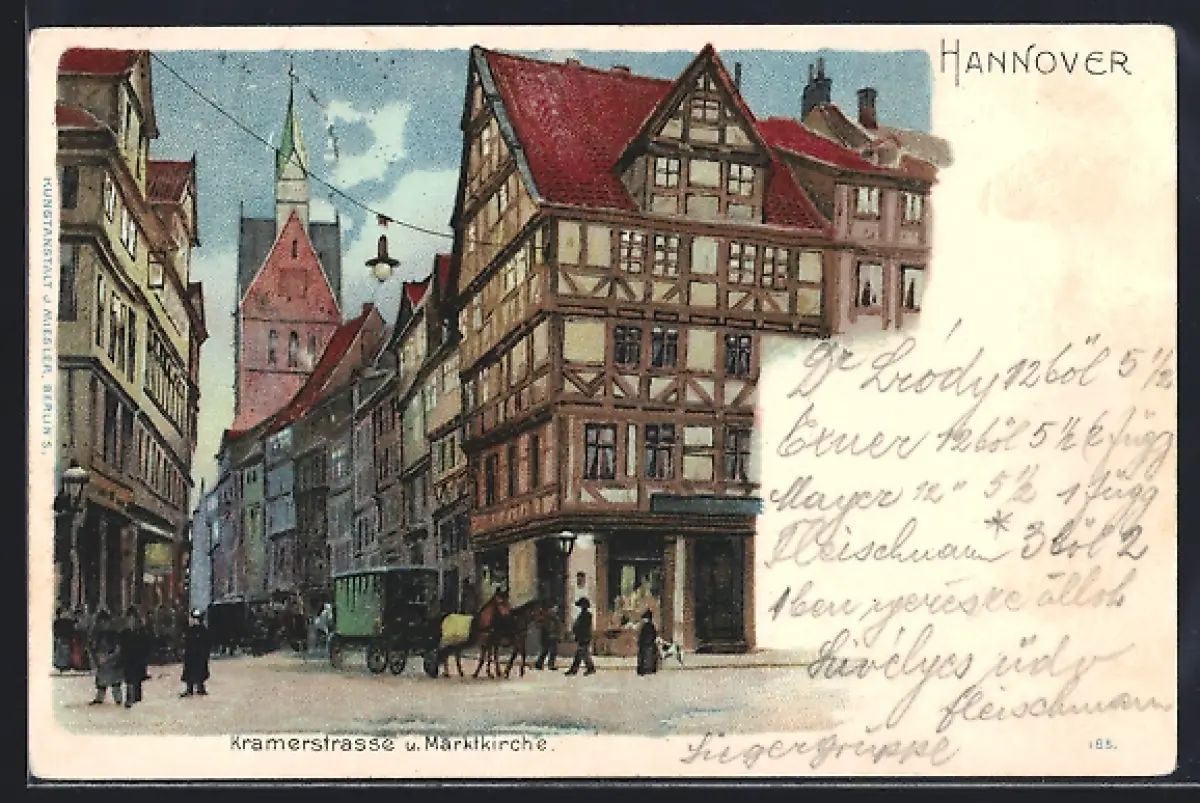 HANNOVER
KUNSTANSTALT J. MIESLER, BERLIN S.
Dr Bródy 12 ből 5 1/2
Exner 12 ből 5 1/2 2 függ
Mayer 12 " 5 1/2 1 függ
Fleischmann * 3 ből 2
1 ben nyerésre állok
Szívélyes üdv
Fleischmann
Siegergruppe
Kramerstrasse u. Marktkirche.
185.